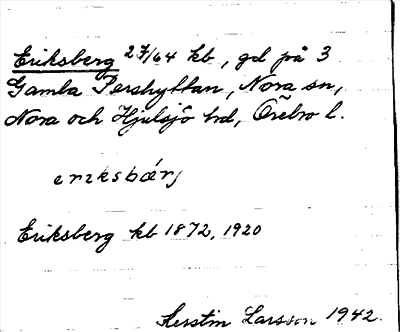 Eriksberg 27/64 kb, gd på 3
Gamla Pershyttan, Nora sn,
Nora och Hjulsjö hd, Örebro l.
eriksbærj
Eriksberg kb 1872, 1920
Kerstin Larsson 1942.